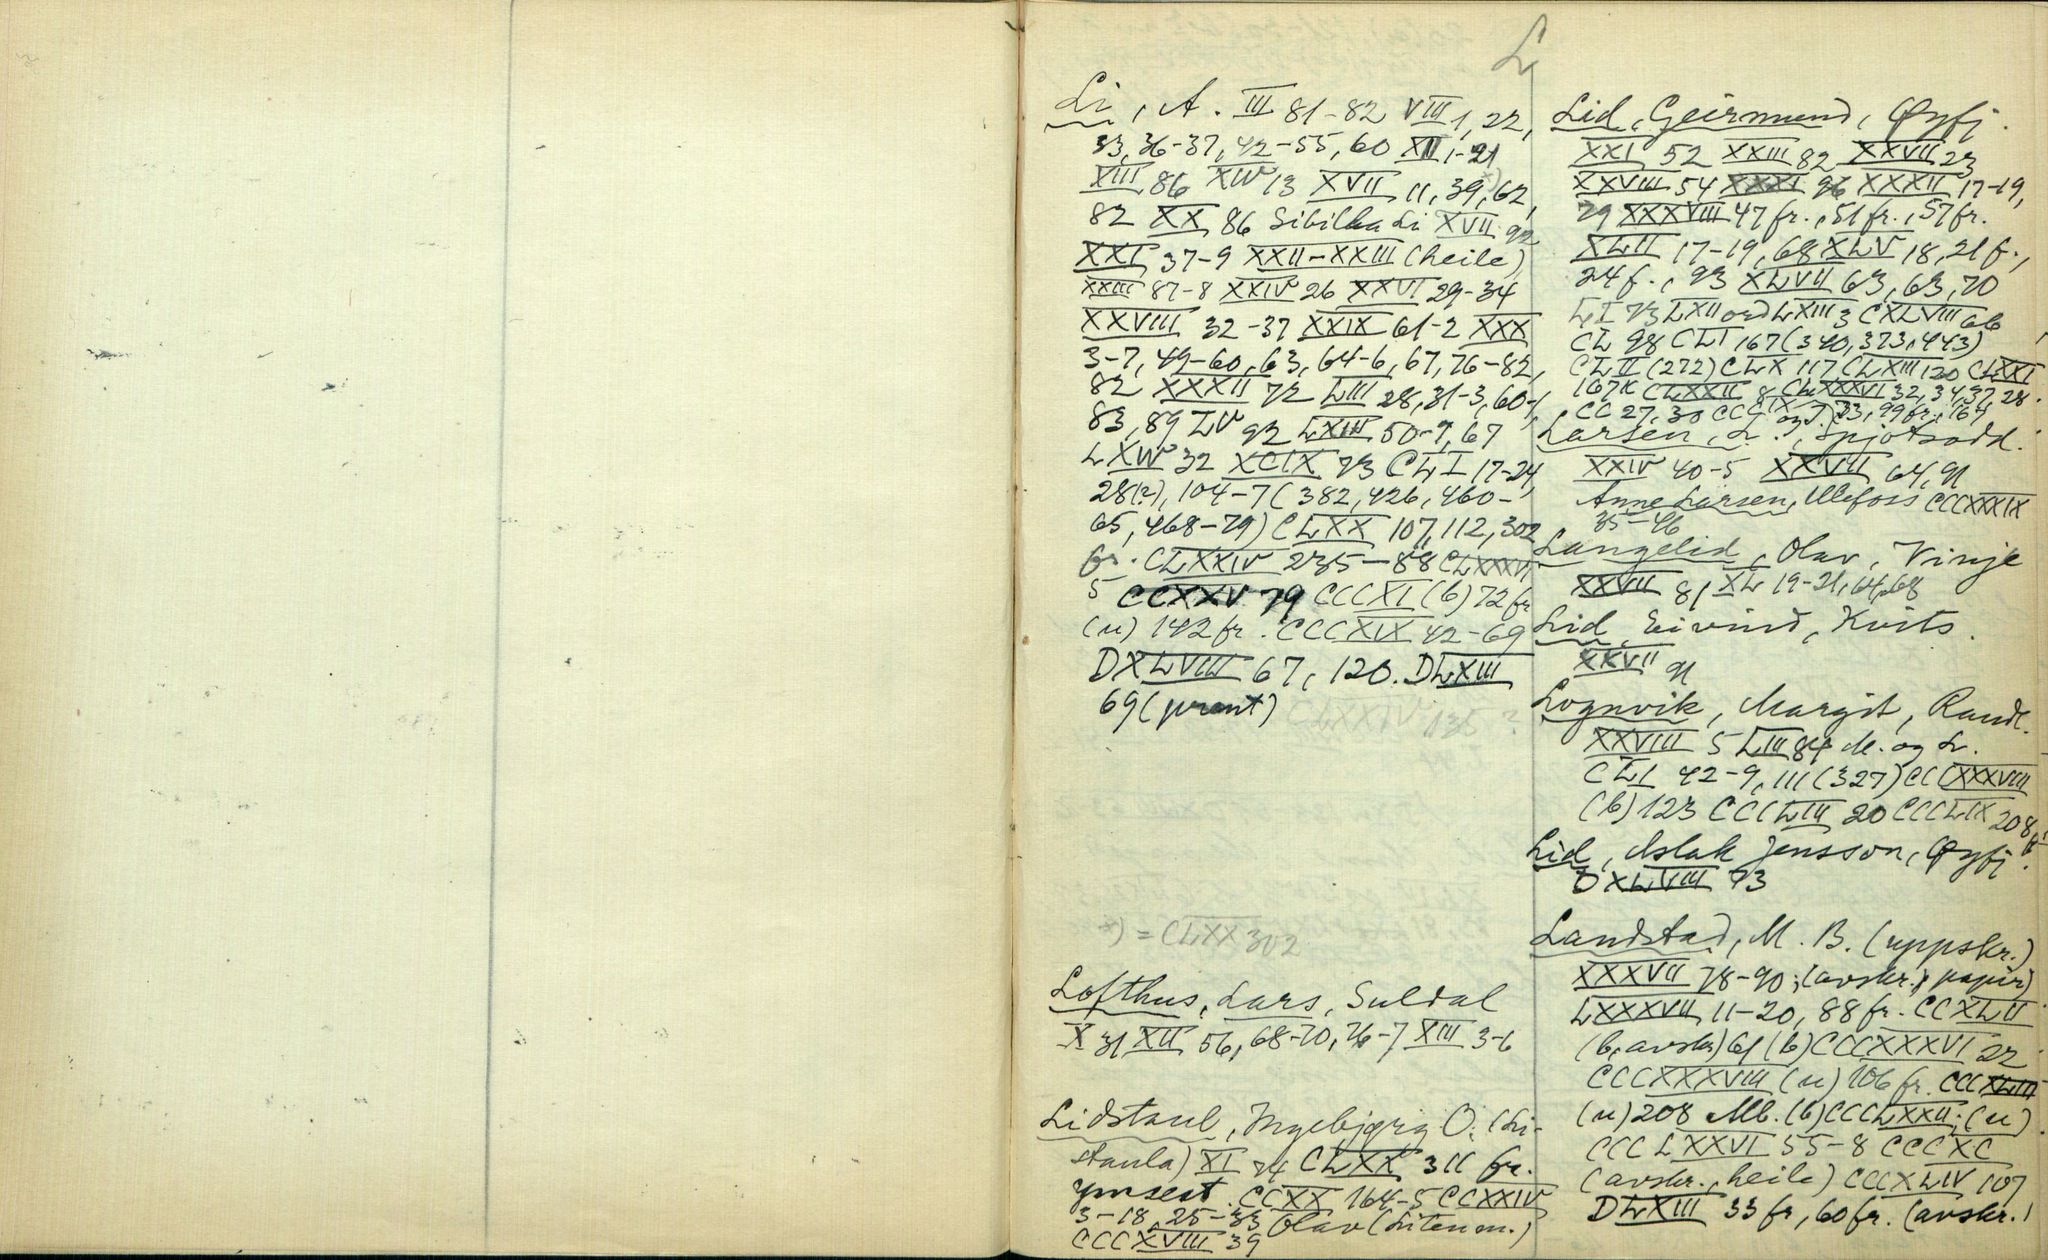 L
Li, A. III 81-82 VIII 1, 22,
33, 36-37, 42-55, 60 XII 1-21
XIII 86 XIV 13 XVII 11, 39, 62,
82 XX 86 Sibilka Li XVII 92
XXI 37-9 XXII-XXIII (heile)
XXIII 87-8 XXIV 26 XXVI 29-34
XXVIII 32-37 XXIX 61-2 XXX
3-7, 49-60, 63, 64-6, 67, 76-82,
82 XXXII 72 LIII 28, 31-3, 60-1,
83, 89 LV 92 LXIII 50-7, 67
LXIV 32 XCIX 73 CLI 17-24,
28(?), 104-7 (382, 426, 460-
65, 468-79) CLXX 107, 112, 302
fr. CLXXIV 235-88 CLXXXVI
5 CCXXV 79 CCCXI (b) 72 fr
(u) 142 fr. CCCXIX 42-69
DXLVIII 67, 120. DLXIII
69 (prent) CLXXIV 135?
x) = CLXX 302
Lofthus, Lars, Suldal
X 31 XII 56, 68-70, 76-7 XIII 3-6
Lidstaul, Ingebjørg O. (Li-
staula) XI 74 CLXX 311 fr.
ymsest. CCXX 164-5 CCXXIV
3-18, 25-33 Olav (Litenm.)
CCCXVIII 39
Lid, Geirmund, Øyfj.
XXI 52 XXIII 82 XXVII 23
XXVIII 54 XXXI 96 XXXII 17-19,
29 XXXVIII 47 fr., 51 fr., 57 fr.
XLII 17-19, 68 XLV 18, 21 f.,
24 f., 93 XLVII 63, 63, 70
LI 73 LXII ord LXIII 3 CXLVIII 66
CL 98 CLI 167 (340, 373, 443)
CLII (272) CLX 117 CLXIII 120 CLXXI
167k CLXXII 8 CLXXXVI 32, 34, 37, 28.
CC 27, 30 33, 99 fr., 164
Larsen, L., Spjotsodd.
XXIV 40-5 XXVII 64, 91
Anne Larsen, Ulefoss CCCXXXIX
35-46
Langelid, Olav, Vinje
XXVII 81 XL 19-21, 64, 68
Lid, Eivind, Kvits.
XXVII 91
Lognvik, Margit, Raudl.
XXVIII 5 LIII 84 M. og L.
CLI 42-9, 111 (327) CCCXXXVIII
(b) 123 CCCLIII 20 CCCLIX 208
Lid, Aslak Jensson, Øyfj.
DXLVIII 73
Landstad, M. B. (uppskr.)
XXXVII 78-90; (avskr., papir)
LXXXVII 11-20, 88 fr. CCXLII
(b, avskr) 61 (b) CCCXXXVI 22
CCCXXXVIII (u) 106 fr. CCCXLIII
(u) 208 Mb. (b) CCCLXXII; (u)
CCCLXXVI 55-8 CCCXC
(avskr., heile) CCCXLIV 107
DLXIII 33 fr, 60 fr. (avskr.)